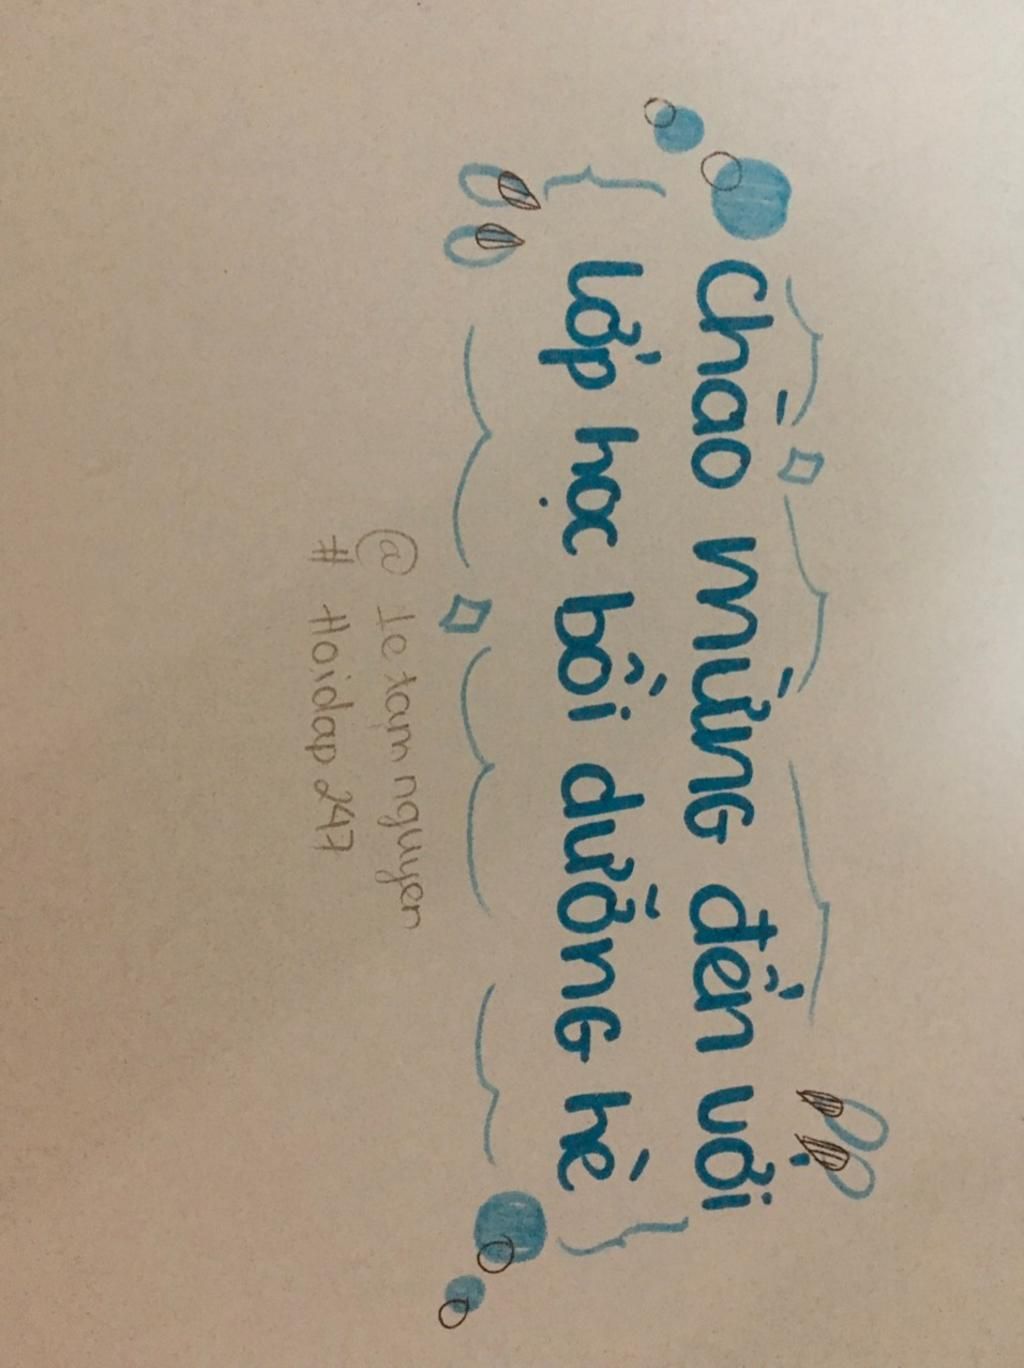 Chào mừng đến với
lớp học bồi dưỡng hè
@ Ietamnguyen
# Hoidap247